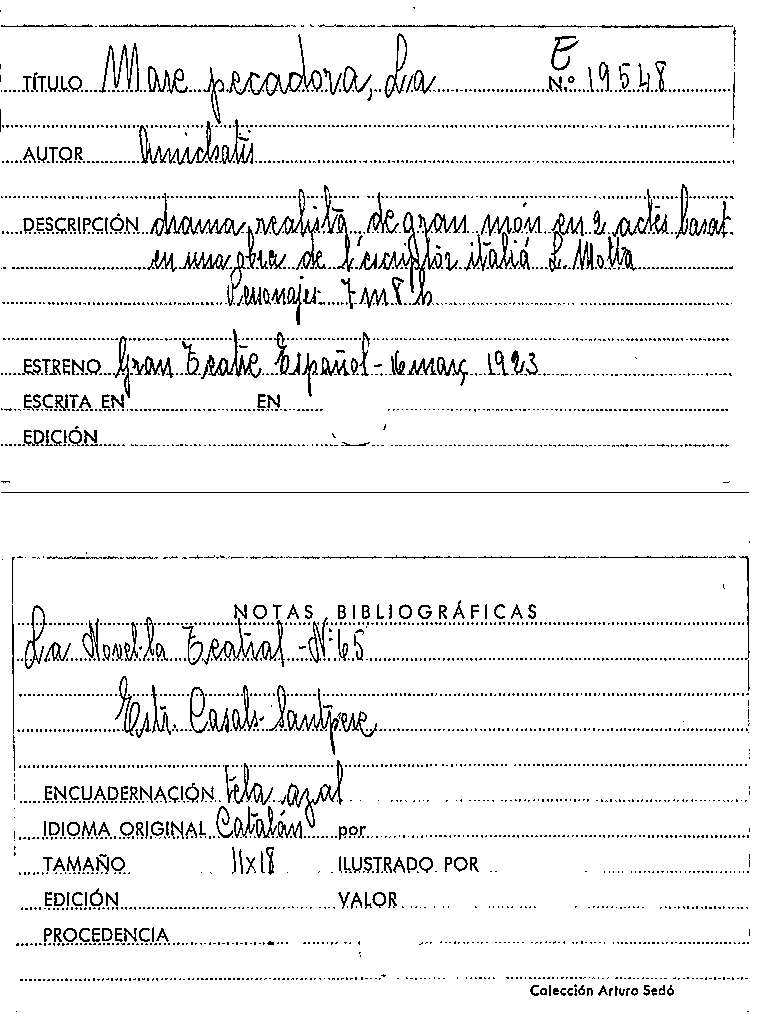 E
TÍTULO Mare pecadora, La N.º 19548
AUTOR Amichatis
DESCRIPCIÓN drama realista de gran món en 2 actes basat
en una obra de l'escriptor italiá L. Motta
Personajes 7 m 8 h
ESTRENO Gran Teatre Español - 16 març 1923
ESCRITA EN EN
EDICIÓN
NOTAS BIBLIOGRÁFICAS
La Novel·la Teatral - Nº 65
Estr. Casals- Santpere
ENCUADERNACIÓN tela azal
IDIOMA ORIGINAL Catalán por
TAMAÑO 11x18 ILUSTRADO POR
EDICIÓN VALOR
PROCEDENCIA
Colección Arturo Sedó